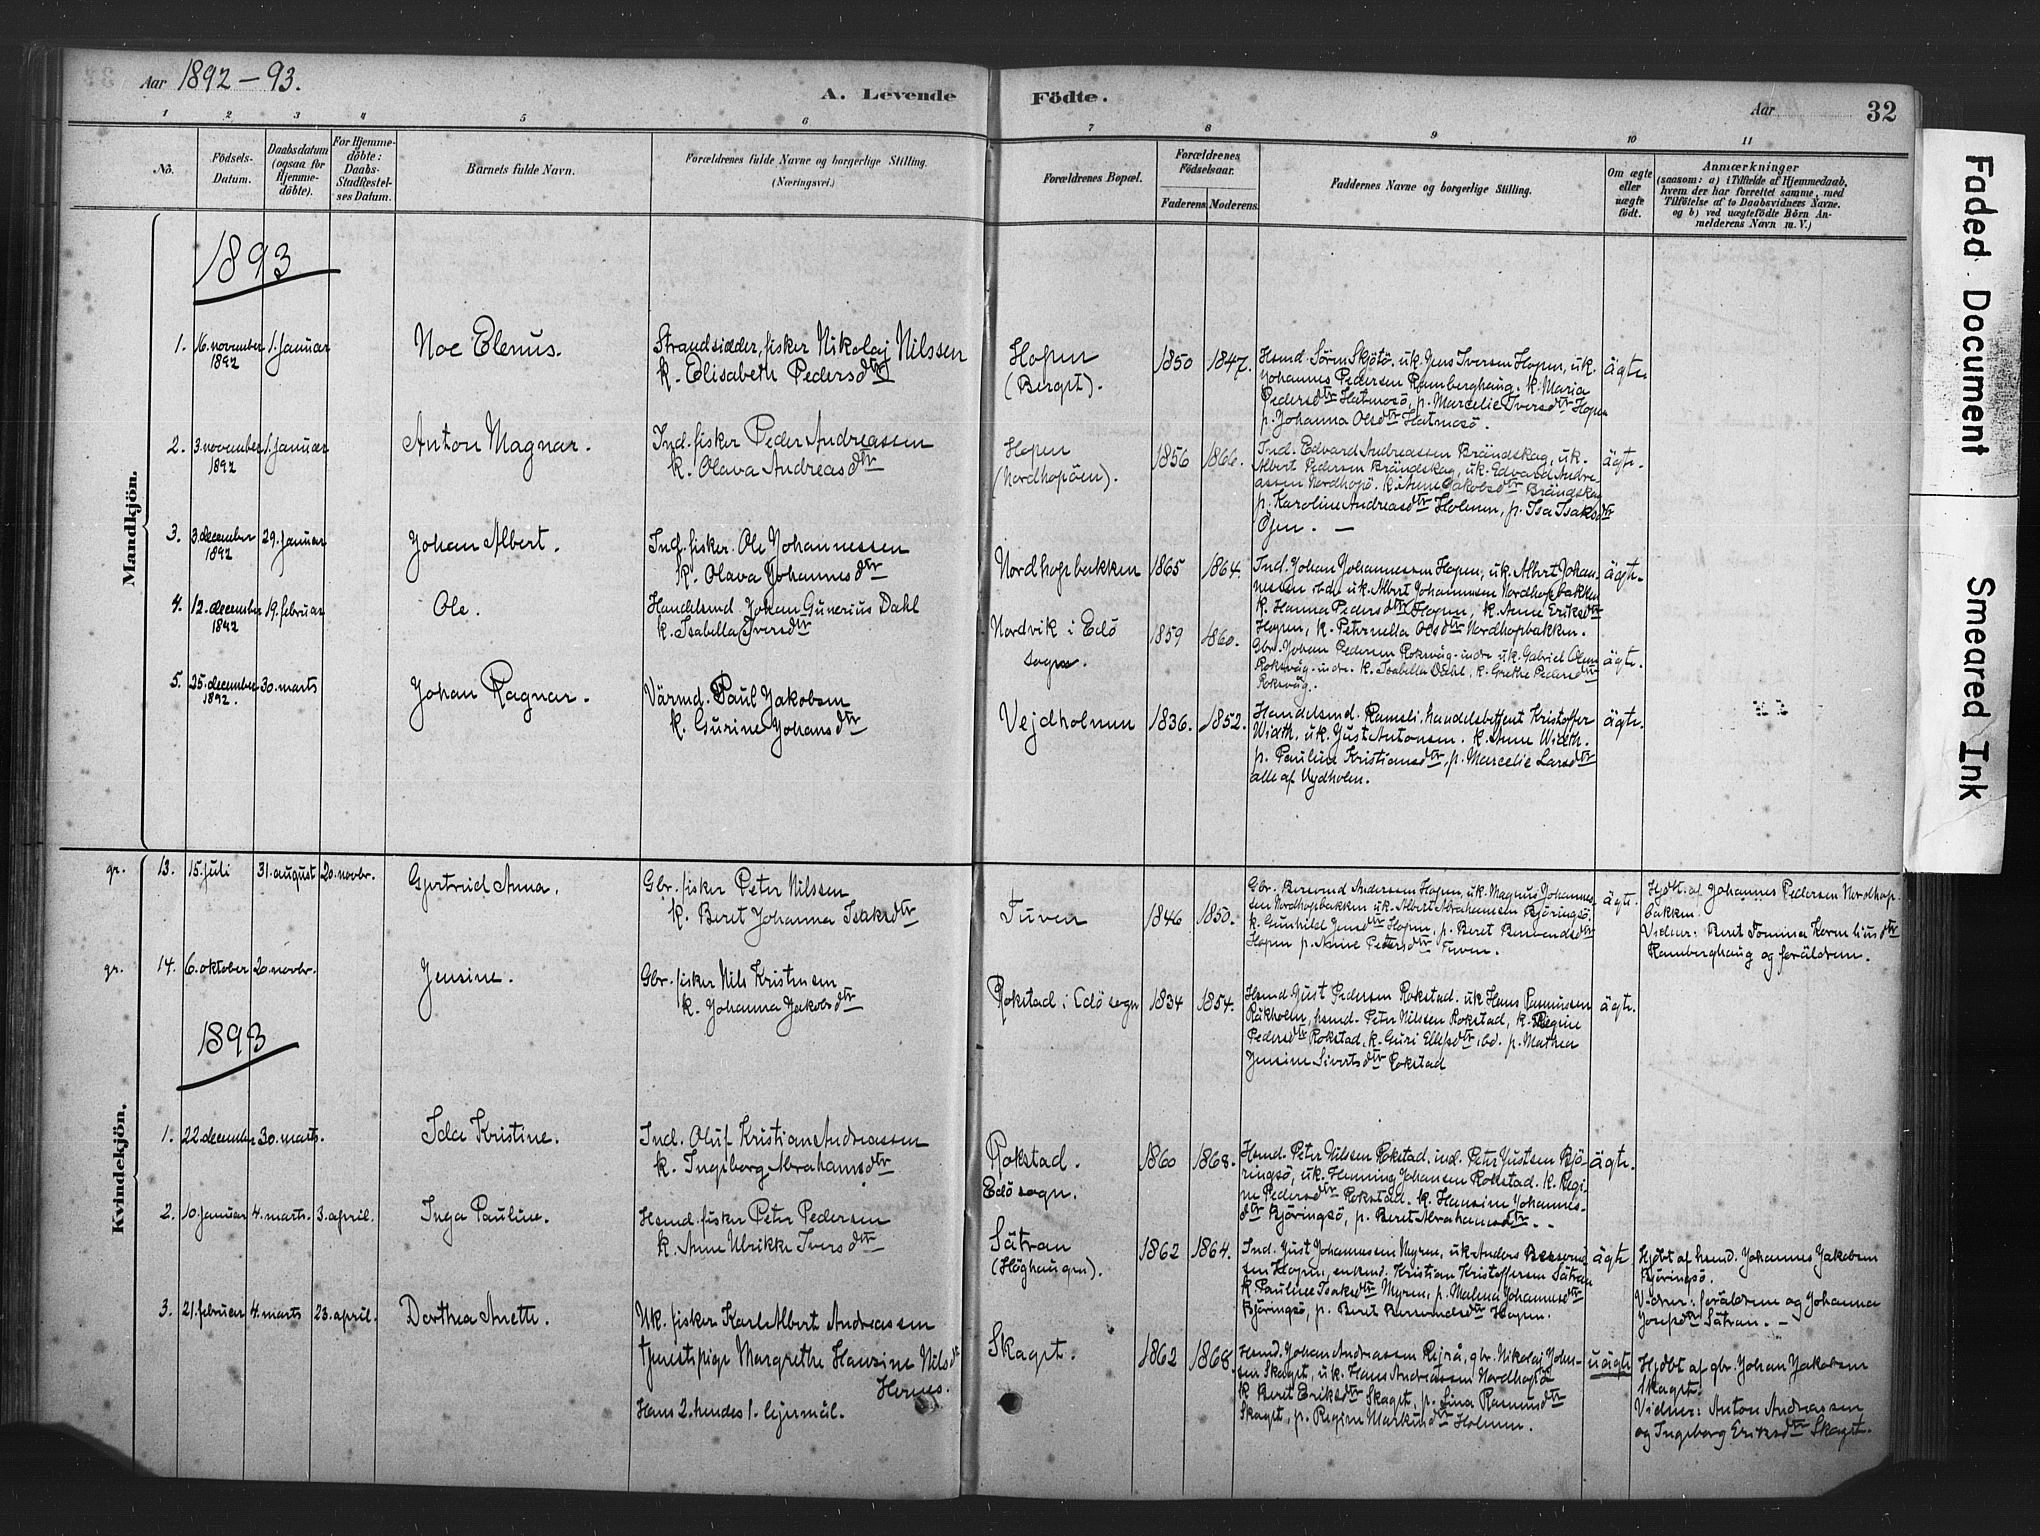 Aar 1892-93.
A. Levende Födte.
Aar 32
1 2 3 4 5 6 7 8 9 10 11
No.
Födsels-
Datum.
Daabsdatum
(ogsaa for
Hjemme-
döbte).
For Hjemme-
döbte:
Daabs-
Stadfestel-
ses Datum.
Barnets fulde Navn.
Forældrenes fulde Navne og borgerlige Stilling.
(Næringsvei.)
Forældrenes Bopæl.
Forældrenes
Födselsaar.
Faderens. Moderens.
Faddernes Navne og borgerlige Stilling.
Om ægte
eller
uægte
födt.
Anmærkninger
(saasom: a) i Tilfælde af Hjemmedaab,
hvem der har forrettet samme, med
Tilföielse af to Daabsvidners Navne.
og b) ved uægtefödte Börn An-
melderens Navn m. V.)
Mandkjön.
1893
1. 16. november 1. Januar
1892
Noe Elenus.
Strandsidder, fisker Nikolaj Nilssen
k. Elisabeth Pedersdtr
Hopen
(Berget).
1850 1847.
Hsmd. Sørin Skjötö. uk. Jens Iversen Hopen, uk.
Johannes Pedersen Ramberghaug. k. Maria
Pedersdtr Hatmosö, p. Marcelie Iversdtr Hopen
p. Johanna Olsdtr Hatmosö.
ägte.
2. 3. november 1. Januar
1892
Anton Magnar.
Ind. fisker Peder Andreassen
k. Olava Andreasdtr
Hopen
(Nordhopöen).
1856 1866.
Ind. Edvard Andreassen Brändskag, uk.
Albert Pedersen Brändskag, uk. Edvard Andre-
assen Nordhopö. k. Anne Jakobsdtr Brändskag
p. Karoline Andreasdtr Holmen, p. Isa Isaksdtr
Öjen. —
ägte.
3. 3. december 29. Januar
1892
Johan Albert.
Ind. fisker. Ole Johannessen
k. Olava Johannesdtr
Nordhopbakken
1865 1864.
Ind. Johan Johannessen Hopen, uk. Albert Johan-
nessen ibd. uk. Albert Johannessen Nordhopbakken
k. Hanna Pedersdtr Hopen, k. Anne Eriksdtr
Hopen, k. Peternella Olsdtr Nordhopbakken.
ägte.
4. 12. december 19. februar
1892
Ole.
Handelsmd Johan Gunerius Dahl
k. Isabella Iversdtr
Nordvik i Edö
sogn.
1859 1860.
Gbr. Johan Pedersen Roksvåg-indre uk. Gabriel Olsen
Roksvåg-indre. k. Isabella Dahl, k. Grethe Pedersdtr
Roksvåg.
ägte.
5. 25. december 30. marts
1892.
Johan Ragnar.
Värmd. Paul Jakobsen
k. Gurine Johansdtr
Vejdholmen
1836. 1852.
Handelsmd. Ramsli. handelsbetjent Kristoffer
Width, uk. Just Antonsen. k. Anne Width.
p. Pauline Kristiansdtr, p. Marcelie Larsdtr
alle af Vejdholm.
ägte.
Kvindekjön.
gr. 13. 15. juli 31. august 20. novbr.
Gjertrud Anna.
Gbr. fisker Peter Nilssen
k. Beret Johanna Isaksdtr
Tuven
1846 1850.
Gbr. Bersvend Andersen Hopen, uk. Magnus Johannes-
sen Nordhopbakken uk. Albert Abrahamsen Björingsö.
k. Gunhild Jensdtr Hopen, p. Beret Bersvendsdtr
Hopen p. Anne Petersdtr Tuven.
ägte.
Hjdt. af Johannes Pedersen Nordhop-
bakken.
Vidner: Beret Tomina Korneliusdtr
Ramberghaug og forældrene.
gr. 14. 6. oktober 20. novbr.
Jensine.
Gbr. fisker Nils Kristensen
k. Johanna Jakobsdtr
Rokstad i Edö sogn
1834 1854.
Hsmd. Just Pedersen Rokstad. uk Hans Rasmussen
Råkholm, hsmd. Peter Nilssen Rokstad, k. Regine
Pedersdtr Rokstad, k. Guri Ellefsdtr, ibd. p. Mathea
Jensine Sivertsdtr Rokstad
ägte.
1893
1. 22. december 30. marts.
Ida Kristine.
Ind. Oluf Kristian Andreassen
k. Ingeborg Abrahamsdtr
Rokstad.
Edö sogn.
1860 1868.
Hsmd. Peter Nilssen Rokstad, ind. Peter Justsen Bjö-
ringsö, uk. Henning Johansen Rokstad. k. Regi-
ne Pedersdtr Rokstad. k. Hansine Johannes-
dtr Björingsö, p. Beret Abrahamsdtr. —
ägte.
2. 10. januar 4. marts. 3. april.
Inga Pauline.
Hsmd. fisker Peter Pedersen
k. Anne Ulrikke Iversdtr
Sätran
(Höghaugen).
1862 1864.
Ind. Just Johannessen Myren, uk. Anders Bersvend-
sen Hopen, enkemd. Kristian Kristoffersen Sätran
k. Pauline Isaksdtr Myren, p. Malena Johannesdtr
Björingsö, p. Beret Bersvendsdtr Hopen.
ägte
Hjdbt af hsmd. Johannes Jakobsen
Björingsö.
Vidner: forældrene og Johanna
Josefsdtr Sätran. —
3. 21. februar 4. marts 23. april.
Dorthea Anette.
Uk. fisker Karl Albert Andreassen
tjenestepige Margrethe Hansine Nilsdtr
Hernes.
Hans 2. hendes 1. lejermål.
Skaget.
1862 1868.
Hsmd. Johan Andreassen Rejrå, gbr. Nikolaj John-
sen Skaget, uk. Hans Andreassen Nordhopö
k. Beret Eriksdtr Skaget, p. Lina Rasmusdtr
Skaget, p. Regine Markusdtr Holmen.
uägte
Hjdbt af gbr. Johan Jakobsen
Skaget.
Vidner: Anton Andreassen
og Ingeborg Eriksdtr Skaget.
Faded Document
Smeared Ink